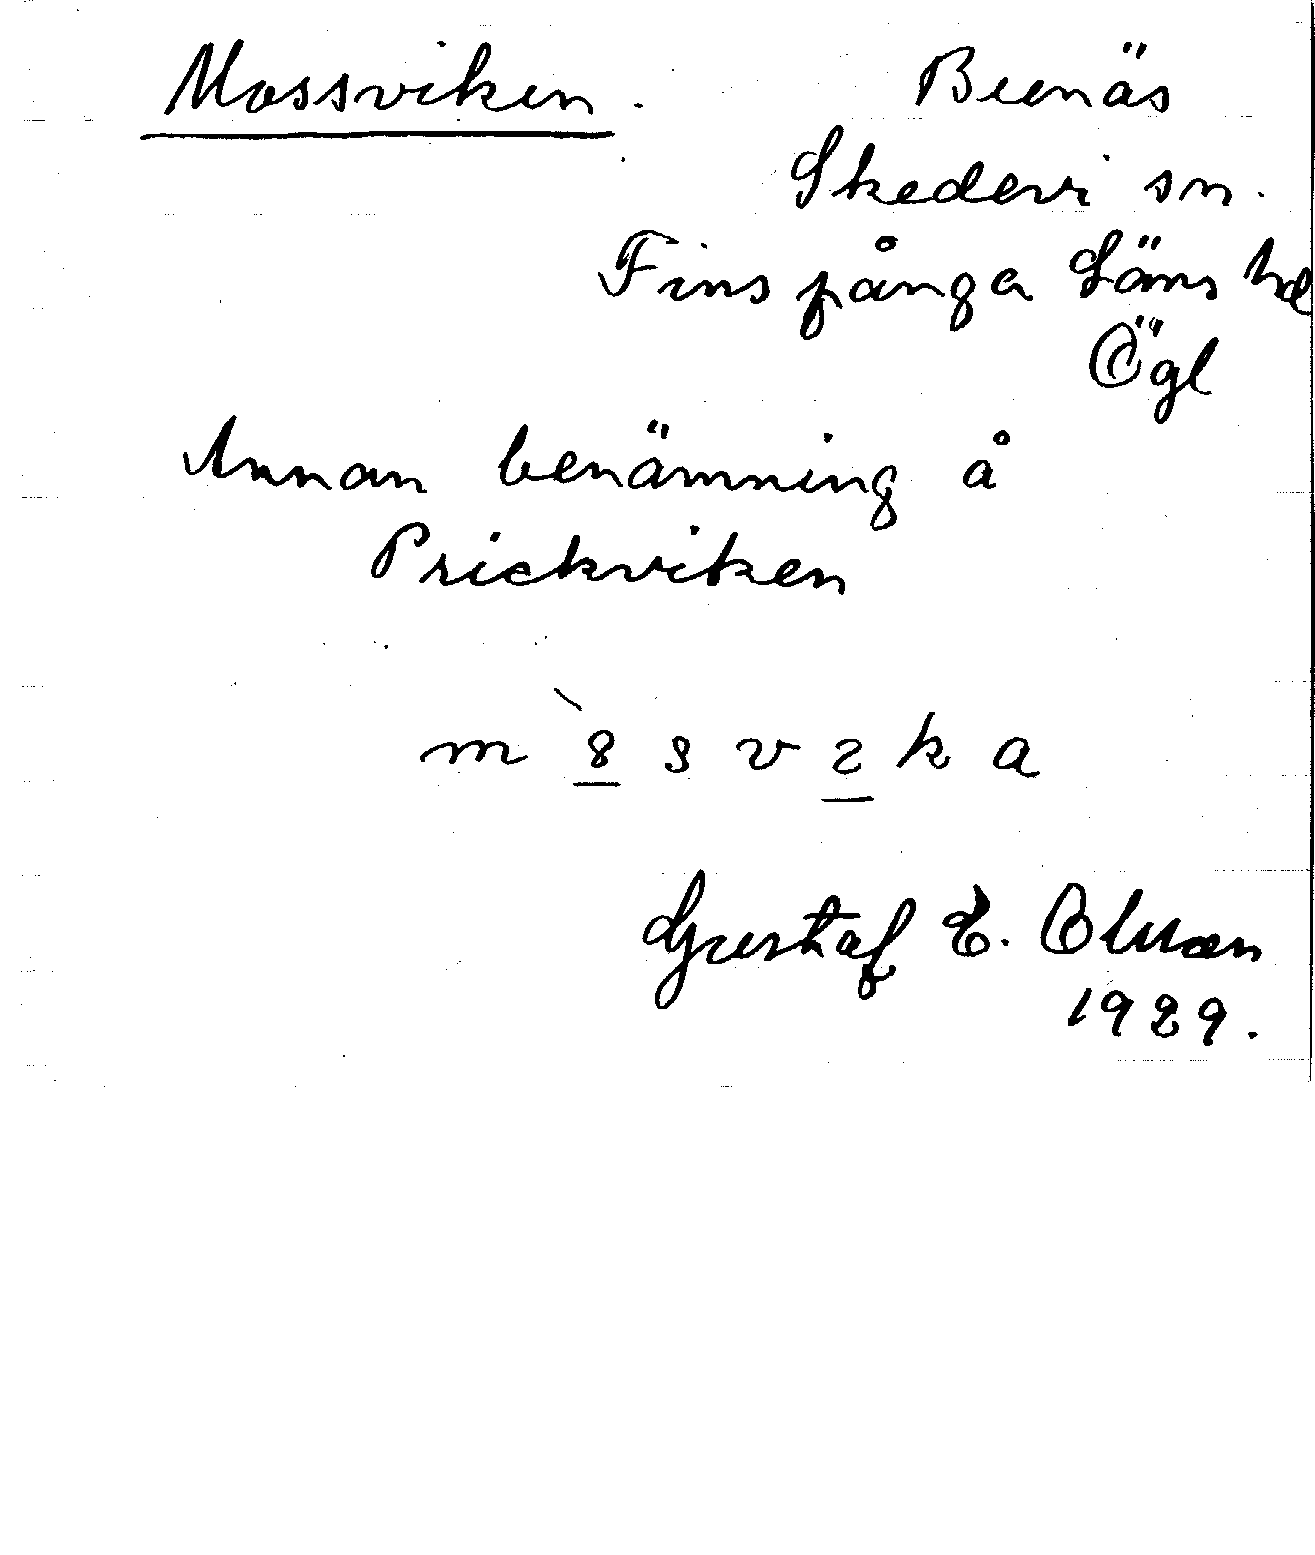 Mossviken. Beenäs
Skedevi sn.
Finspånga Läns hd
Ögl
Annan benämning å
Prickviken
Gustaf E. Olsson
1929.